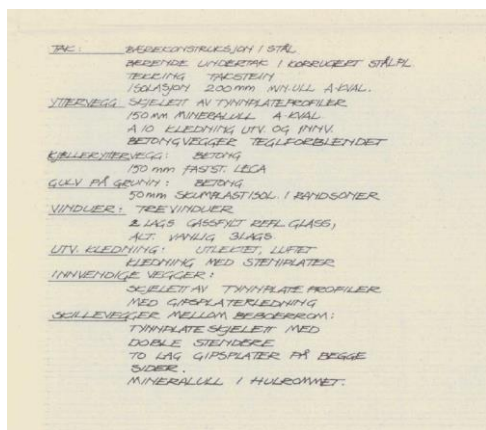 TAK: BÆREKONSTRUKSJON I STÅL
BÆRENDE UNDERTAK I KORRUGERT STÅLPL.
TEKKING TAKSTEIN
ISOLASJON 200mm MIN.ULL A-KVAL.
YTTERVEGG SKJELETT AV TYNNPLATEPROFILER
150mm MINERALULL A-KVAL
A10 KLEDNING UTV. OG INNV.
BETONGVEGGER TEGLFORBLENDET
KJELLERYTTERVEGG: BETONG
150 mm FASTST. LECA
GULV PÅ GRUNN: BETONG
50mm SKUMPLASTISOL. I RANDSONER
VINDUER: TREVINDUER
2 LAGS GASSFYLT REFL. GLASS,
ALT. VANLIG 3LAGS.
UTV. KLEDNING: UTLEKTET, LUFTET
KLEDNING MED STENIPLATER
INNVENDIGE VEGGER:
SKJELETT AV TYNNPLATEPROFILER
MED GIPSPLATEKLEDNING
SKILLEVEGGER MELLOM BEBOERROM:
TYNNPLATESKJELETT MED
DOBLE STENDERE
TO LAG GIPSPLATER PÅ BEGGE
SIDER.
MINERALULL I HULROMMET.